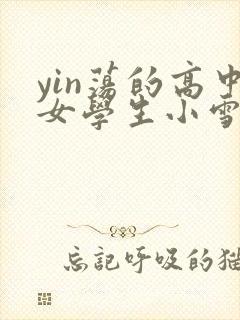 yin蕩的高中
女學生小雪
忘記呼吸的貓